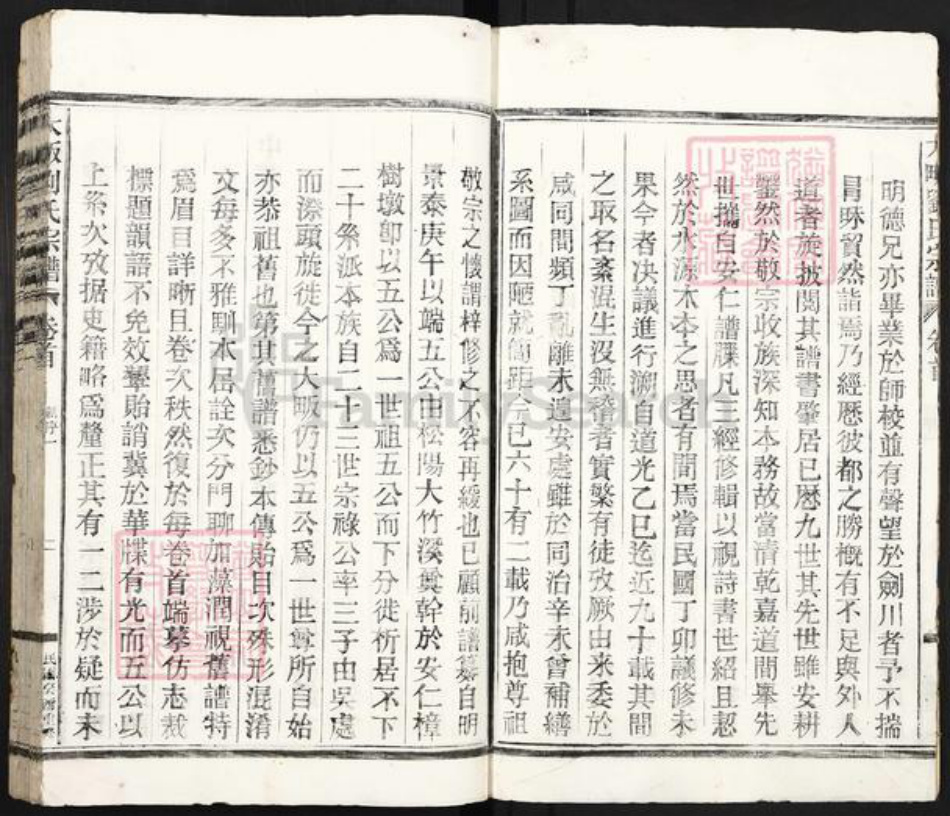 明德兄亦畢業於師校並有聲望於劍川者予不揣
冒昧貿然詣焉乃經歷彼都之勝概有不足與外人
道者旋披閱其譜書肇居已歷九世其先世雖安耕
鑿然於敬宗收族深知本務故當清乾嘉道間舉先
世攜自安仁譜牒凡三經修輯以視詩書世紹且恝
然於水源木本之思者有間焉當民國丁卯議修未
果今者決議進行溯自道光乙巳迄近九十載其間
之取名紊混生沒無稽者實繁有徒攷厥由来委於
咸同間頻丁亂離未遑安處雖於同治辛未曾補繕
系圖而因陋就簡距今已六十有二載乃咸抱尊祖
敬宗之懷謂梓修之不容再緩也已顧前譜纂自明
景泰庚午以端五公由松陽大竹溪糞幹於安仁樟
樹墩卽以五公爲一世祖五公而下分徙析居不下
二十餘派本族自二十三世宗祿公率三子由吳處
而漈頭旋徙今之大畈仍以五公爲一世尊所自始
亦恭祖舊也第其舊譜悉鈔本傳貽目次殊形混淆
文每多不雅馴本屆詮次分門聊加藻潤視舊譜特
爲眉目詳晰且卷次秩然復於每卷首端摹仿志裁
標題韻語不免效顰貽誚冀於華牒有光而五公以
上系次攷据史籍略爲釐正其有一二涉於疑而未
大畈劉氏宗譜
卷首
FamilySearch